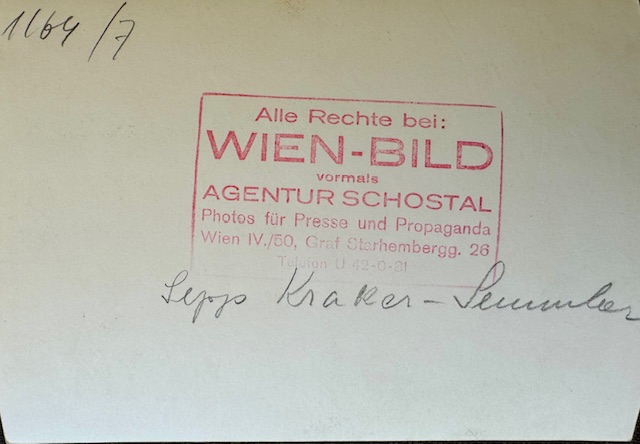 1164/7
Alle Rechte bei:
WIEN-BILD
vormals
AGENTUR SCHOSTAL
Photos für Presse und Propaganda
Wien IV./50, Graf Starhembergg. 26
Telefon U 42-0-81
Sepp Kraker -